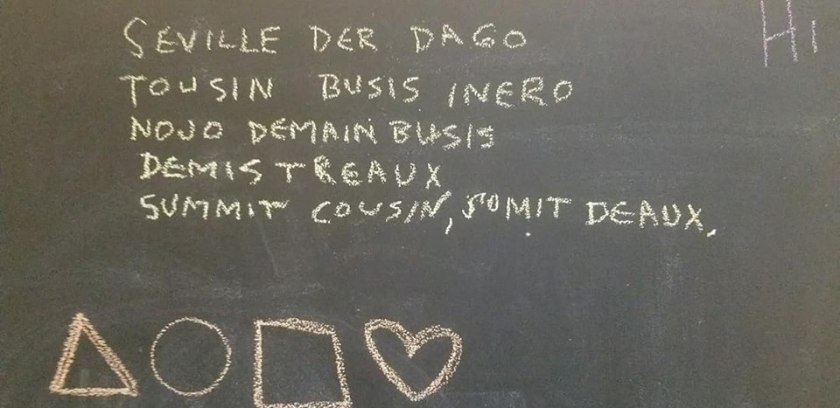 SEVILLE DER DAGO
TOUSIN BUSIS INERO
NOJO DEMAIN BUSIS
DEMIS TREAUX
SUMMIT COUSIN, SUMIT DEAUX.
Hi